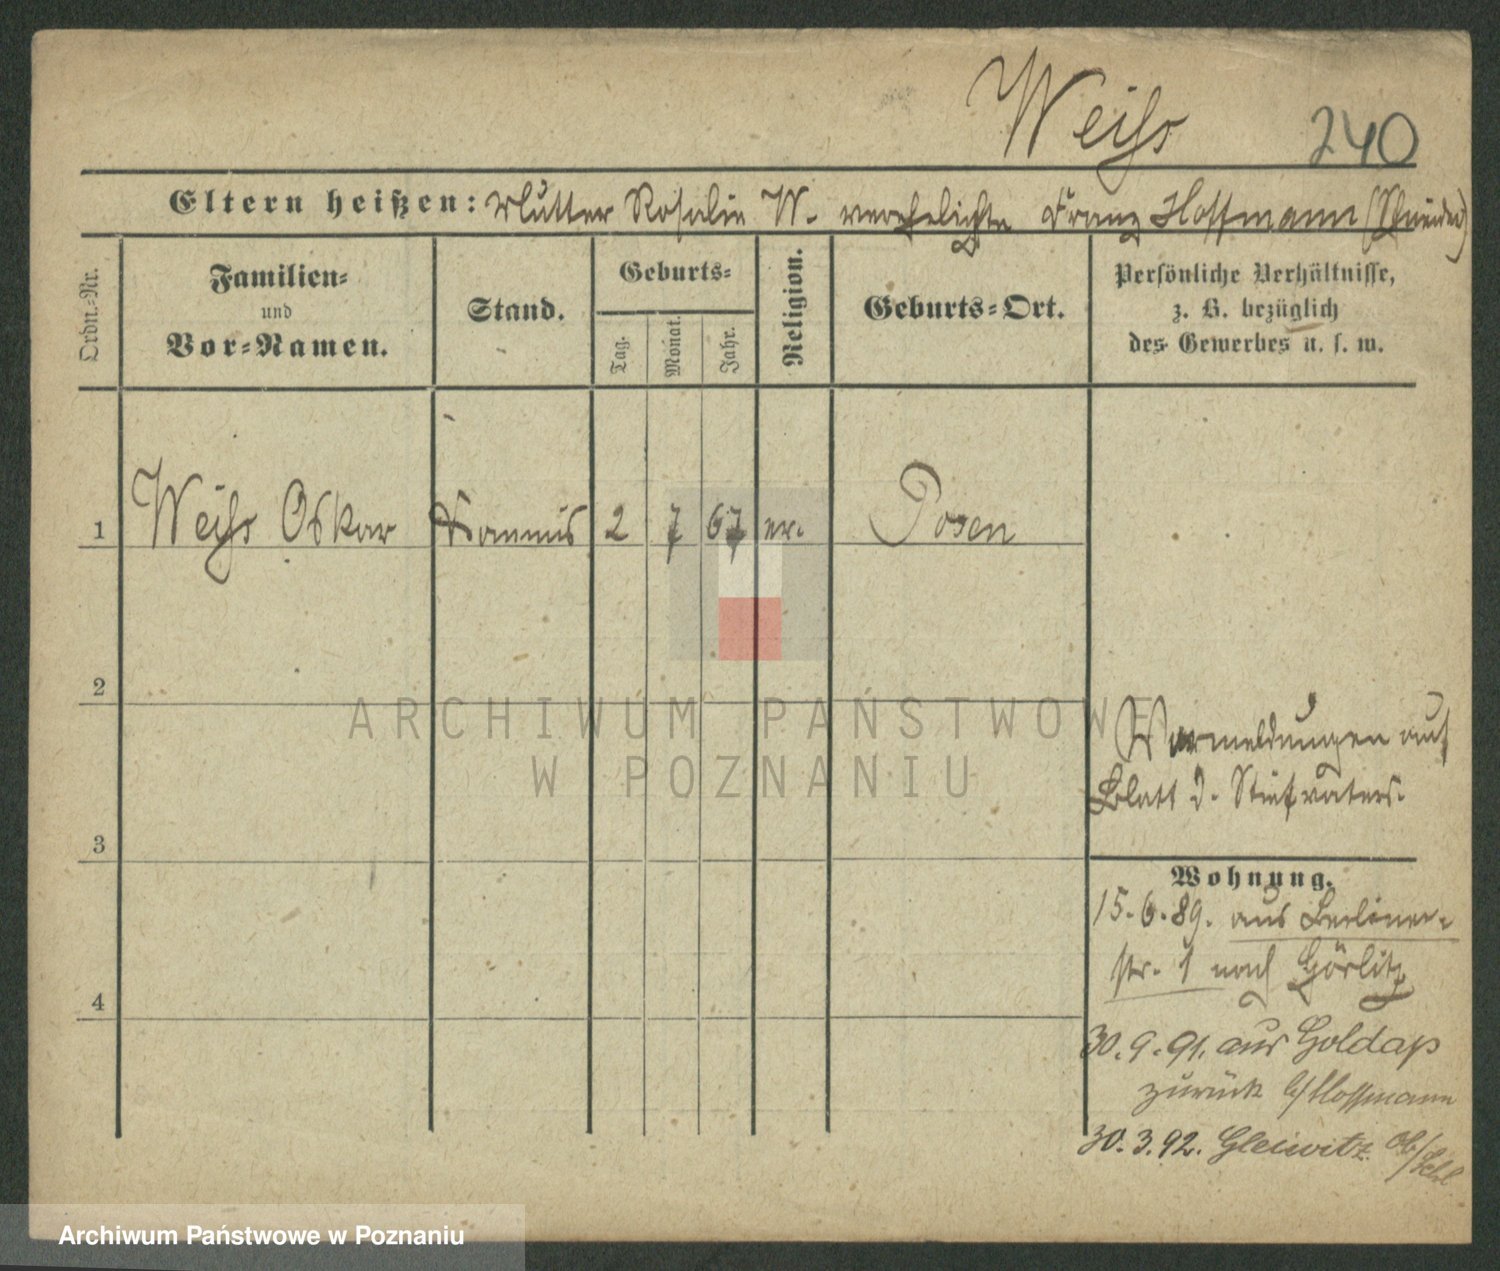 Weiss 240
Eltern heißen: Mutter Rosalie W. verehelichte Franz Hoffmann (Schneider)
Ordn.-Nr.
Familien-
und
Vor-Namen.
Stand.
Geburts-
Tag.
Monat.
Jahr.
Religion.
Geburts-Ort.
Persönliche Verhältnisse,
z. B. bezüglich
des Gewerbes u. s. w.
1 Weiss Oskar Kommis 2 7 67 ev. Posen
2
3
4
Vormeldungen auf
Blatt d. Stiefvaters.
Wohnung.
15.6.89. aus Berliner-
str. 1 nach Görlitz
30.9.91. aus Goldap
zurück b/ Hoffmann
30.3.92. Gleiwitz Ob/Schl
ARCHIWUM PAŃSTWOWE
W POZNANIU
Archiwum Państwowe w Poznaniu